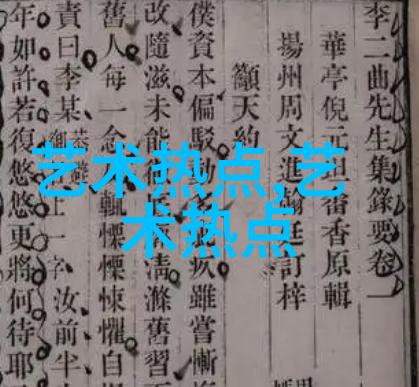 李二曲先生集錄要卷一
華亭倪元坦畬香原輯
揚州周文進廷訂梓
籲天約
僕資本偏駁疚雖嘗慚
改隨滋未能清滌舊習
舊人每一念輒慄慄悚懼自
責曰李某上一字汝前半
年如許若復悠悠更將何待耶
艺术热点,艺
术热点